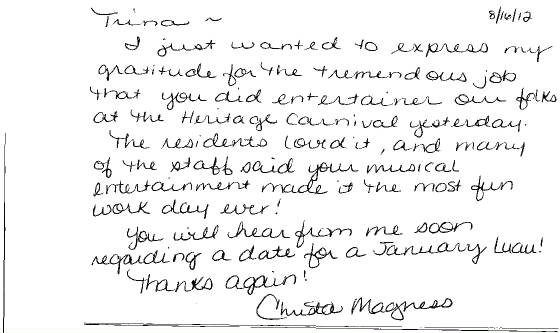 Trina ~ 8/16/12
I just wanted to express my
gratitude for the tremendous job
that you did entertainer our folks
at the Heritage Carnival yesterday.
The residents loved it, and many
of the staff said your musical
entertainment made it the most fun
work day ever!
You will hear from me soon
regarding a date for a January Luau!
Thanks again!
Christa Magness